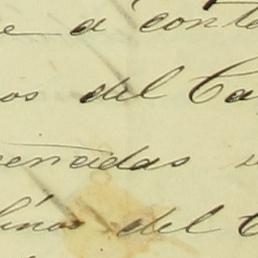 e a conte
os del Ca
encadas
linos del C